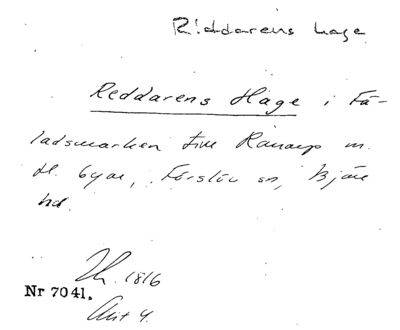 Riddarens hage
Reddarens Hage i Fä-
ladsmarken till Ranarp m.
fl. byar, Förslöv sn, Bjäre
hd.
1816
Nr 7041.
Akt 4.